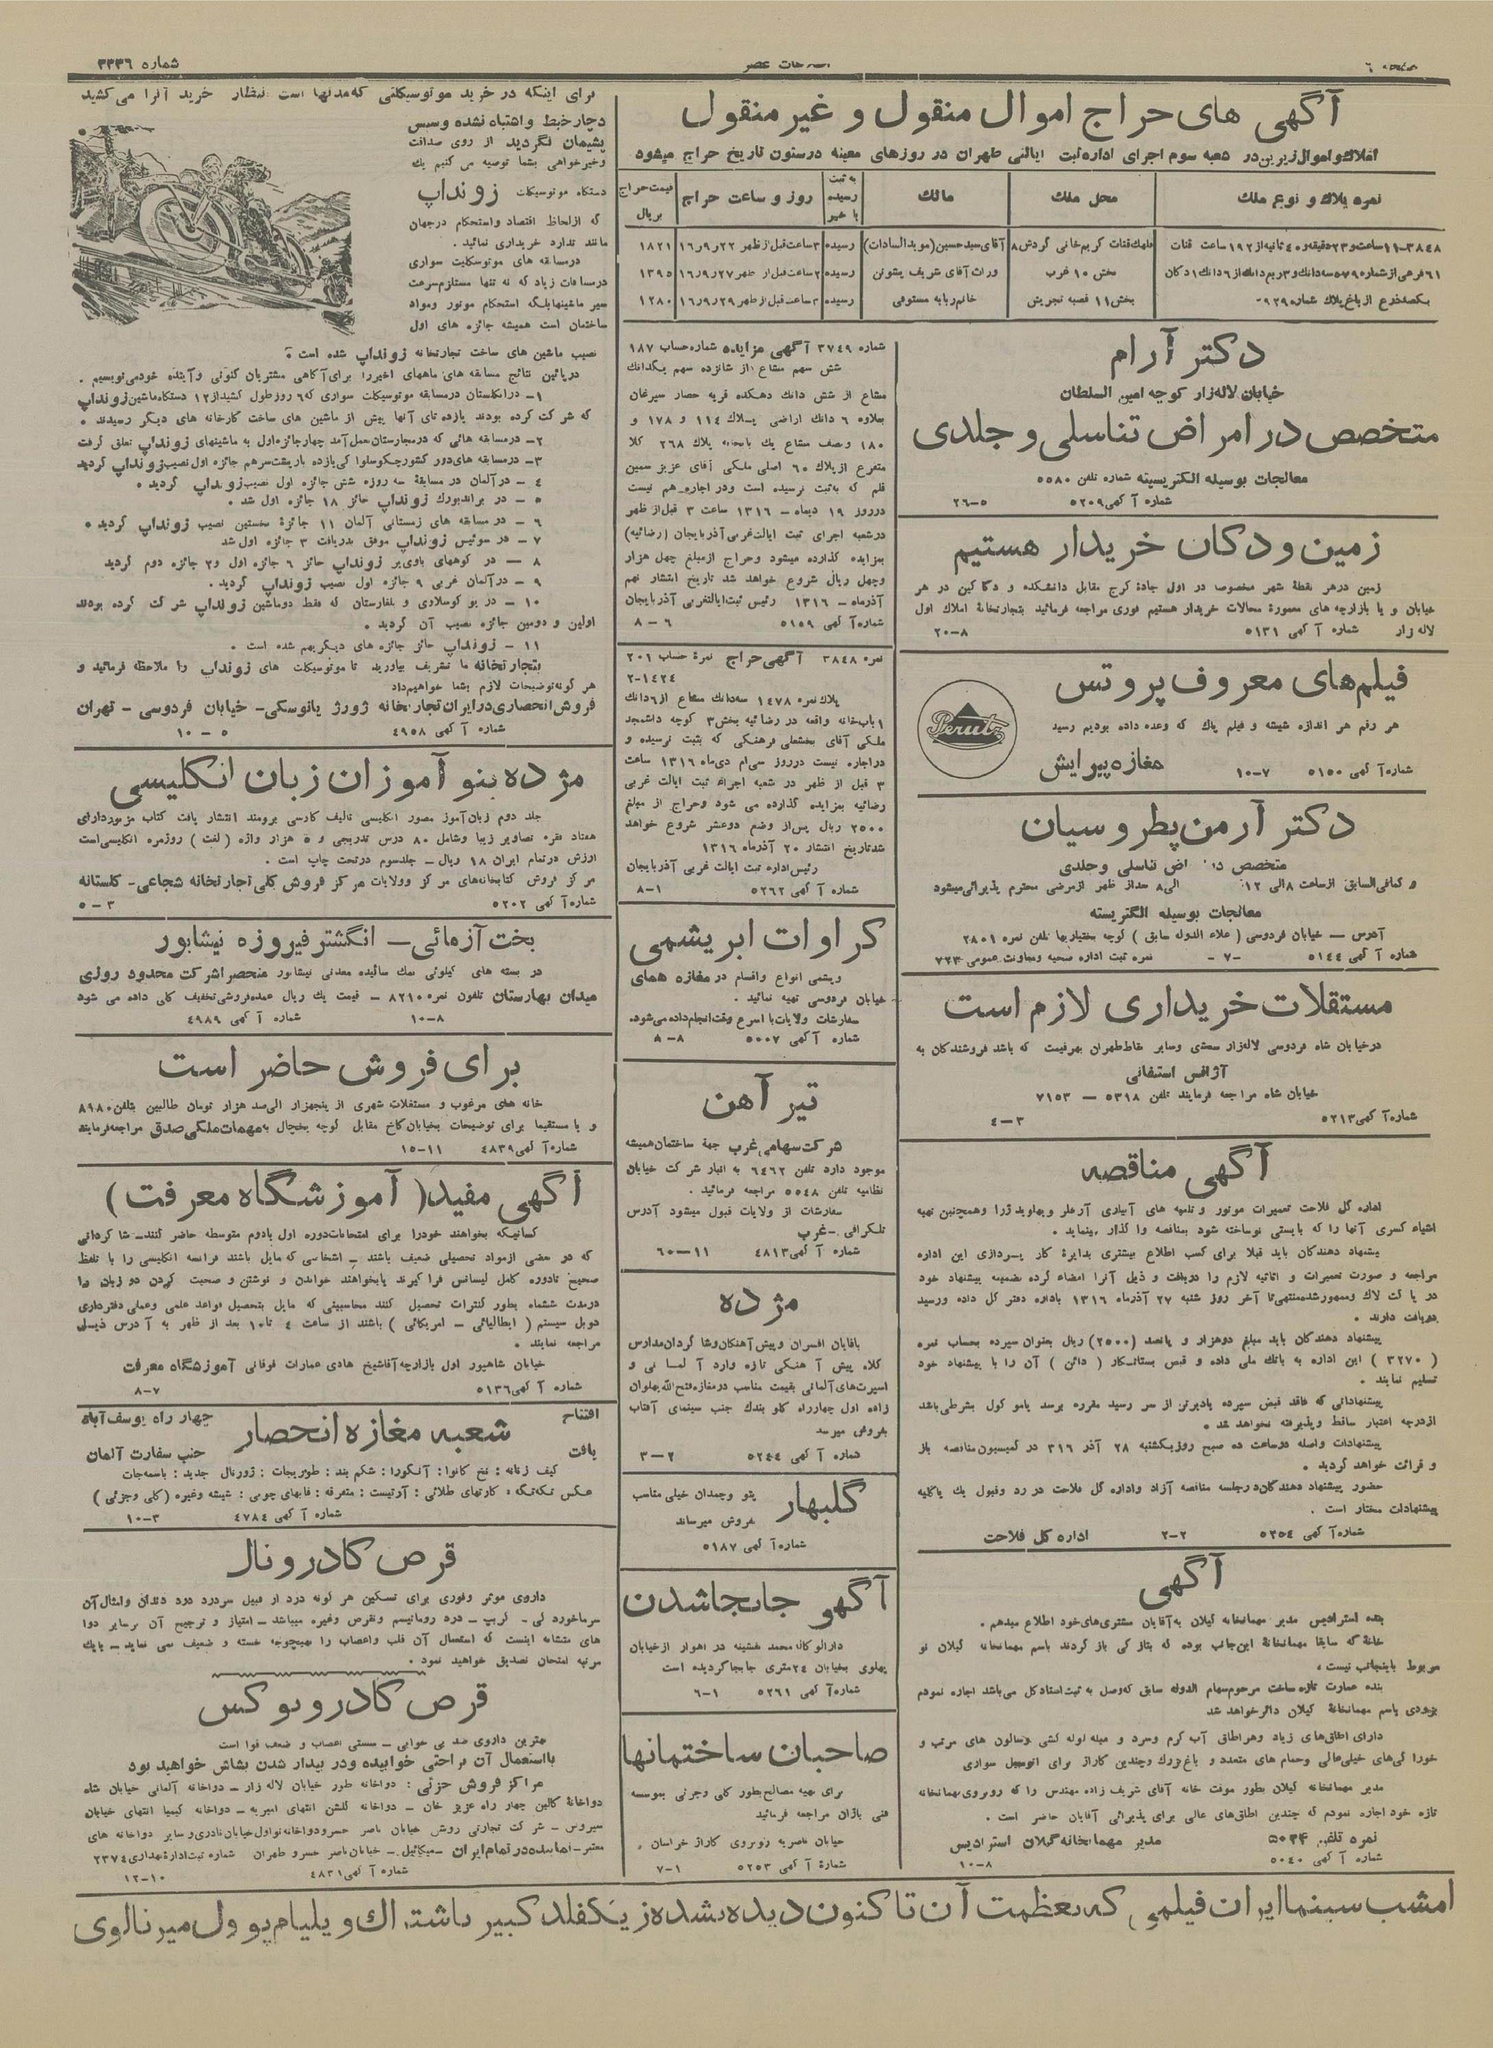 صفحه ٦
اطلاعات عصر
شماره ۳۳۳٦
آگهی های حراج اموال منقول و غیر منقول
املاک و اموال زیرین در شعبه سوم اجرای اداره ثبت ایالتی طهران در روزهای معینه در ستون تاریخ حراج میشود
نمره پلاک و نوع ملک
محل ملک
مالک
به ثبت رسیده یا خیر
روز و ساعت حراج
قیمت حراج بریال
۳۸٤۸-۱۱ ساعت و ۲۳ دقیقه و ٤۰ ثانیه از ۱۹۲ ساعت قنات
ملک قنات کریم خانی گردش ۸
آقای سید حسین (موید السادات)
رسیده
۳ ساعت قبل از ظهر ۲۲ر۹ر۱٦
۱۸۲۱
٦۱ فرعی از شماره ۵۷۹ سه دانگ و سه ربع دانگ از ٦ دانگ ۱ دکان
بخش ۱۰ غرب
وراث آقای شریف پشوتن
رسیده
۲ ساعت قبل از ظهر ۲۷ر۹ر۱٦
۱۳۹۵
یکصد ذرع از باغ پلاک شماره ۹۲۹
بخش ۱۱ قصبه تجریش
خانم ربابه مستوفی
رسیده
۲ ساعت قبل از ظهر ۲۹ر۹ر۱٦
۱۲۸۰
دکتر آرام
خیابان لاله زار کوچه امین السلطان
متخصص در امراض تناسلی و جلدی
معالجات بوسیله الکتریسیته شماره تلفن ۵۵۸۰
شماره آگهی ۵۲۰۹ ۵-۲٦
زمین و دکان خریدار هستیم
زمین در هر نقطه شهر مخصوصا در اول جادهٔ کرج مقابل دانشکده و دکاکین در هر
خیابان و یا بازارچه های معمورهٔ محالات خریدار هستیم فوری مراجعه فرمائید بتجارتخانهٔ املاک اول
لاله زار شماره آگهی ۵۱۳۱ ۸-۲۰
فیلم های معروف پروتس
هر رقم هر اندازه شیشه و فیلم پاک که وعده داده بودیم رسید
مغازه پیرایش
Perutz
شماره آگهی ۵۱۵۰ ۷-۱۰
دکتر آرمن پطروسیان
متخصص در امراض تناسلی و جلدی
و کمافی السابق از ساعت ۸ الی ۱۲ الی ۸ بعد از ظهر از مرضی محترم پذیرائی میشود
معالجات بوسیله الکتریسته
آدرس — خیابان فردوسی (علاء الدوله سابق) کوچه بختیاریها تلفن نمره ۲۸۰۱
شماره آگهی ۵۱٤٤ -۷- نمره ثبت اداره صحیه و معاونت عمومی ۷۲۳
مستقلات خریداری لازم است
در خیابان شاه فردوسی لاله زار سعدی و سایر نقاط طهران بهر قیمت که باشد فروشندگان به
آژانس استیفانی
خیابان شاه مراجعه فرمایند تلفن ۵۳۱۸ — ۷۱۵۳
شماره آگهی ۵۲۱۳ ۳-٤
آگهی مناقصه
اداره کل فلاحت تعمیرات موتور و تلمبه های آبیاری و همچنین تهیه
اشیاء کسری آنها را که بایستی نوساخته شود بمناقصه واگذار مینماید.
پیشنهاد دهندگان باید قبلا برای کسب اطلاع بیشتری بدایرهٔ کارپردازی این اداره
مراجعه و صورت تعمیرات و اثاثیه لازم را دریافت و ذیل آنرا امضاء کرده بضمیمه پیشنهاد خود
در پاکت لاک و ممهور شده منتهی تا آخر روز شنبه ۲۷ آذرماه ۱۳۱٦ باداره دفتر کل داده و رسید
دریافت دارند.
پیشنهاد دهندگان باید مبلغ دوهزار و پانصد (۲۵۰۰) ریال بعنوان سپرده بحساب نمره
(۳۲۷۰) این اداره به بانک ملی داده و قبض بستانکار (دائن) آن را با پیشنهاد خود
تسلیم نمایند.
پیشنهاداتی که فاقد قبض سپرده یا دیرتر از سر رسید مقرره برسد یا موکول بشرطی باشد
از درجه اعتبار ساقط و پذیرفته نخواهد شد.
پیشنهادات واصله در ساعت ده صبح روز یکشنبه ۲۸ آذر ۳۱٦ در کمیسیون مناقصه باز
و قرائت خواهد گردید.
حضور پیشنهاد دهندگان در جلسه مناقصه آزاد و اداره کل فلاحت در رد و قبول یک یا کلیه
پیشنهادات مختار است.
شماره آگهی ۵۲۵٤ ۲-۲ اداره کل فلاحت
آگهی
بنده استرادیس مدیر مهمانخانه گیلان به آقایان مشتری های خود اطلاع میدهم.
خانه که سابقا مهمانخانهٔ این جانب بوده که بتازگی باز گردند باسم مهمانخانه گیلان نو
مربوط باینجانب نیست.
بنده عمارت تازه ساخت مرحوم سهام الدوله سابق که وصل به ثبت اسناد کل می باشد اجاره نمودم
بزودی باسم مهمانخانهٔ گیلان دائر خواهد شد
دارای اطاق های زیاد و هر اطاق آب گرم و سرد و مبله لوله کشی و سالون های مرتب و
خوراکی های خیلی عالی و حمام های متعدد و باغ بزرگ و چندین گاراژ برای اتومبیل سواری
مدیر مهمانخانه گیلان بطور موقت خانه آقای شریف زاده مهندس را که روبروی مهمانخانه
تازه خود اجاره نمودم که چندین اطاق های عالی برای پذیرائی آقایان حاضر است.
نمره تلفن ۵۰۳۴ مدیر مهمانخانه گیلان استرادیس
شماره آگهی ۵۰٤۰ ۸-۱۰
شماره ۳۷٤۹ آگهی مزایده شماره حساب ۱۸۷
شش سهم مشاع از شانزده سهم یکدانگ
مشاع از شش دانگ دهکده قریه حصار سیرغان
بعلاوه ٦ دانگ اراضی پلاک ۱۱٤ و ۱۷۸ و
۱۸۰ و نصف مشاع یک باغچه پلاک ۲٦۸ کلا
متفرع از پلاک ٦۰ اصلی ملکی آقای عزیز سمین
قلم که به ثبت نرسیده است و در اجاره هم نیست
در روز ۱۹ دیماه — ۱۳۱٦ ساعت ۳ قبل از ظهر
در شعبه اجرای ثبت ایالت غربی آذربایجان (رضائیه)
بمزایده گذارده میشود و حراج از مبلغ چهل هزار
و چهل ریال شروع خواهد شد تاریخ انتشار نهم
آذرماه — ۱۳۱٦ رئیس ثبت ایالت غربی آذربایجان
شماره آگهی ۵۱۵۹ ٦-۸
نمره ۳۸٤۸ آگهی حراج نمرهٔ حساب ۲۰۱
۲-۱٤۲٤
پلاک نمره ۱٤۷۸ سه دانگ مشاع از ٦ دانگ
۱ باب خانه واقعه در رضائیه بخش ۳ کوچه دانشمجد
ملکی آقای بخشعلی فرهنگی که بثبت نرسیده و
در اجاره نیست در روز سی ام دی ماه ۱۳۱٦ ساعت
۳ قبل از ظهر در شعبه اجراء ثبت ایالت غربی
رضائیه بمزایده گذارده می شود و حراج از مبلغ
۲۵۰۰ ریال پس از وضع دو عشر شروع خواهد
شد تاریخ انتشار ۲۰ آذرماه ۱۳۱٦
رئیس اداره ثبت ایالت غربی آذربایجان
شماره آگهی ۵۲٦۲ ۱-۸
کراوات ابریشمی
و پشمی انواع و اقسام در مغازه همای
خیابان فردوسی تهیه نمائید.
سفارشات ولایات با اسرع وقت انجام داده می شود.
شماره آگهی ۵۰۰۷ ۸-۸
تیر آهن
شرکت سهامی غرب جهة ساختمان همیشه
موجود دارد تلفن ٦٤٦۲ به انبار شرکت خیابان
نظامیه تلفن ۵۵٤۸ مراجعه فرمائید.
سفارشات از ولایات قبول میشود آدرس
تلگرافی — غرب
شماره آگهی ٤۸۱۳ ۱۱-٦۰
مژده
باقایان افسران و پیش آهنگان و شاگردان مدارس
کلاه پیش آهنگی تازه وارد آلمانی و
اسپرت های آلمانی بقیمت مناسب در مغازه فتح الله پهلوان
زاده اول چهار راه کلوبندک جنب سینمای آفتاب
بفروش میرسد
شماره آگهی ۵۲٤٤ ۲-۳
گلبهار
پتو و چمدان خیلی مناسب
بفروش میرساند
شماره آگهی ۵۱۸۷
آگهی جابجا شدن
دارالوکاله محمد در اهواز از خیابان
پهلوی بخیابان ۲٤ متری جابجا گردیده است
شماره آگهی ۵۲٦۱ ۱-٦
صاحبان ساختمانها
برای تهیه مصالح بطور کلی و جزئی بموسسه
فنی یاران مراجعه فرمائید
خیابان ناصریه روبروی گاراژ خراسان
شمارهٔ آگهی ۵۲۵۳ ۱-۷
برای اینکه در خرید موتوسیکلتی که مدتها است انتظار خرید آنرا می کشید
دچار خبط و اشتباه نشده و سپس
پشیمان نگردید از روی صداقت
و خیرخواهی بشما توصیه می کنیم یک
دستگاه موتوسیکلت زونداپ
که از لحاظ اقتصاد و استحکام در جهان
مانند ندارد خریداری نمائید.
در مسابقه های موتوسکلیت سواری
در مسافات زیاد که نه تنها مستلزم سرعت
سیر ماشینها بلکه استحکام موتور و مواد
ساختمان است همیشه جائزه های اول
نصیب ماشین های ساخت تجارتخانه زونداپ شده است.
در پائین نتائج مسابقه های ماههای اخیر را برای آگاهی مشتریان کنونی و آیندهٔ خود می نویسیم.
۱— در انگلستان در مسابقه موتوسیکلت سواری که ٦ روز طول کشید از ۱۲ دستگاه ماشین زونداپ
که شرکت کرده بودند یازده تای آنها پیش از ماشین های ساخت کارخانه های دیگر رسیدند.
۲— در مسابقه هائی که در مجارستان بعمل آمد چهار جائزه اول به ماشینهای زونداپ تعلق گرفت
۳— در مسابقه های دور کشور چکوسلواکی یازده بار پشت سر هم جائزه اول نصیب زونداپ گردید
٤ — در آلمان در مسابقهٔ سه روزه شش جائزه اول نصیب زونداپ گردید.
۵ — در براندبورک زونداپ حائز ۱۸ جائزه اول شد.
٦ — در مسابقه های زمستانی آلمان ۱۱ جائزهٔ نخستین نصیب زونداپ گردید.
۷ — در سوئیس زونداپ موفق بدریافت ۳ جائزه اول شد
۸ — در کوههای باویر زونداپ حائز ٦ جائزه اول و ۲ جائزه دوم گردید
۹ — در آلمان غربی ۹ جائزه اول نصیب زونداپ گردید.
۱۰ — در یوگوسلاوی و بلغارستان که فقط دو ماشین زونداپ شرکت کرده بودند
اولین و دومین جائزه نصیب آن گردید.
۱۱ — زونداپ حائز جائزه های دیگر بهم شده است.
بتجارتخانه ما تشریف بیاورید تا موتوسیکلت های زونداپ را ملاحظه فرمائید و
هر گونه توضیحات لازم بشما خواهیم داد
فروش انحصاری در ایران تجارتخانه ژورژ یانوسکی — خیابان فردوسی — تهران
شماره آگهی ٤۹۵۸ ۵-۱۰
مژده بنو آموزان زبان انگلیسی
جلد دوم زبان آموز مصور انگلیسی تالیف کارسی برومند انتشار یافت کتاب مزبور دارای
هفتاد فقره تصاویر زیبا و شامل ۸۰ درس تدریجی و ۵ هزار واژه (لغت) روزمره انگلیسی است
ارزش در تمام ایران ۱۸ ریال — جلد سوم در تحت چاپ است.
مرکز فروش کتابخانه های مرکز و ولایات مرکز فروش کلی تجارتخانه شجاعی — گلستانه
شماره آگهی ۵۲۰۲ ۳-۵
بخت آزمائی — انگشتر فیروزه نیشابور
در بسته های کیلوئی نمک سائیده معدنی نیشابور منحصرا شرکت محدود روزی
میدان بهارستان تلفون نمره ۸۲۱۰ — قیمت یک ریال عمده فروشی تخفیف کلی داده می شود
شماره آگهی ٤۹۸۹ ۸-۱۰
برای فروش حاضر است
خانه های مرغوب و مستقلات شهری از پنجهزار الی صد هزار تومان طالبین بتلفن ۸۹۸۰
و یا مستقیما برای توضیحات بخیابان کاخ مقابل کوچه یخچال به مهمات ملکی صدق مراجعه فرمایند
شماره آگهی ٤۸۳۹ ۱۱-۱۵
آگهی مفید (آموزشگاه معرفت)
کسانیکه بخواهند خود را برای امتحانات دوره اول یا دوم متوسطه حاضر کنند — شاگردانی
که در بعضی از مواد تحصیلی ضعیف باشند — اشخاصی که مایل باشند فرانسه انگلیسی را با تلفظ
صحیح تا دوره کامل لیسانس فرا گیرند یا بخواهند خواندن و نوشتن و صحبت کردن دو زبان را
در مدت ششماه بطور کنترات تحصیل کنند محاسبینی که مایل بتحصیل قواعد علمی و عملی دفترداری
دوبل سیستم (ایطالیائی — امریکائی) باشند از ساعت ٤ تا ۱۰ بعد از ظهر به آدرس ذیل
مراجعه نمایند.
خیابان شاهپور اول بازارچه آقا شیخ هادی عمارات فوقانی آموزشگاه معرفت
شماره آگهی ۵۱۳٦ ۷-۸
افتتاح یافت شعبه مغازه انحصار چهار راه یوسف آباد جنب سفارت آلمان
کیف زنانه: نخ کانوا: آنگورا: شکم بند: طوریجات: ژورنال جدید: باسمه جات
عکس تکه تکه: کارتهای طلائی: آرتیست: متفرقه: قابهای چوبی: شیشه و غیره (کلی و جزئی)
شماره آگهی ٤۷۸٤ ۳-۱۰
قرص کادرونال
داروی موثر و فوری برای تسکین هر گونه درد از قبیل سردرد درد دندان و امثال آن
سرماخوردگی — گریپ — درد روماتیسم و نقرص و غیره میباشد — امتیاز و ترجیح آن بر سایر دوا
های مشابه اینست که استعمال آن قلب و اعصاب را بهیچوجه خسته و ضعیف نمی نماید — با یک
مرتبه امتحان تصدیق خواهید نمود.
بهترین داروی ضد بی خوابی — سستی اعصاب و ضعف قوا است
با استعمال آن براحتی خوابیده و در بیدار شدن بشاش خواهید بود
مراکز فروش جزئی: دواخانه طور خیابان لاله زار — دواخانه آلمانی خیابان شاه
دواخانهٔ کالین چهار راه عزیز خان — دواخانه گلشن انتهای امیریه — دواخانه کیمیا انتهای خیابان
سیروس — شرکت تجارتی روش خیابان ناصر خسرو دواخانه نو اول خیابان نادری و سایر دواخانه های
معتبر — نماینده در تمام ایران — میکائیل — خیابان ناصر خسرو طهران شماره ثبت اداره بهداری ۲۳۷٤
شماره آگهی ٤۸۳۱ ۱۰-۱۲
امشب سینما ایران فیلمی که بعظمت آن تا کنون دیده نشده زیگفلد کبیر باشتراک ویلیام پوول میرنالوی